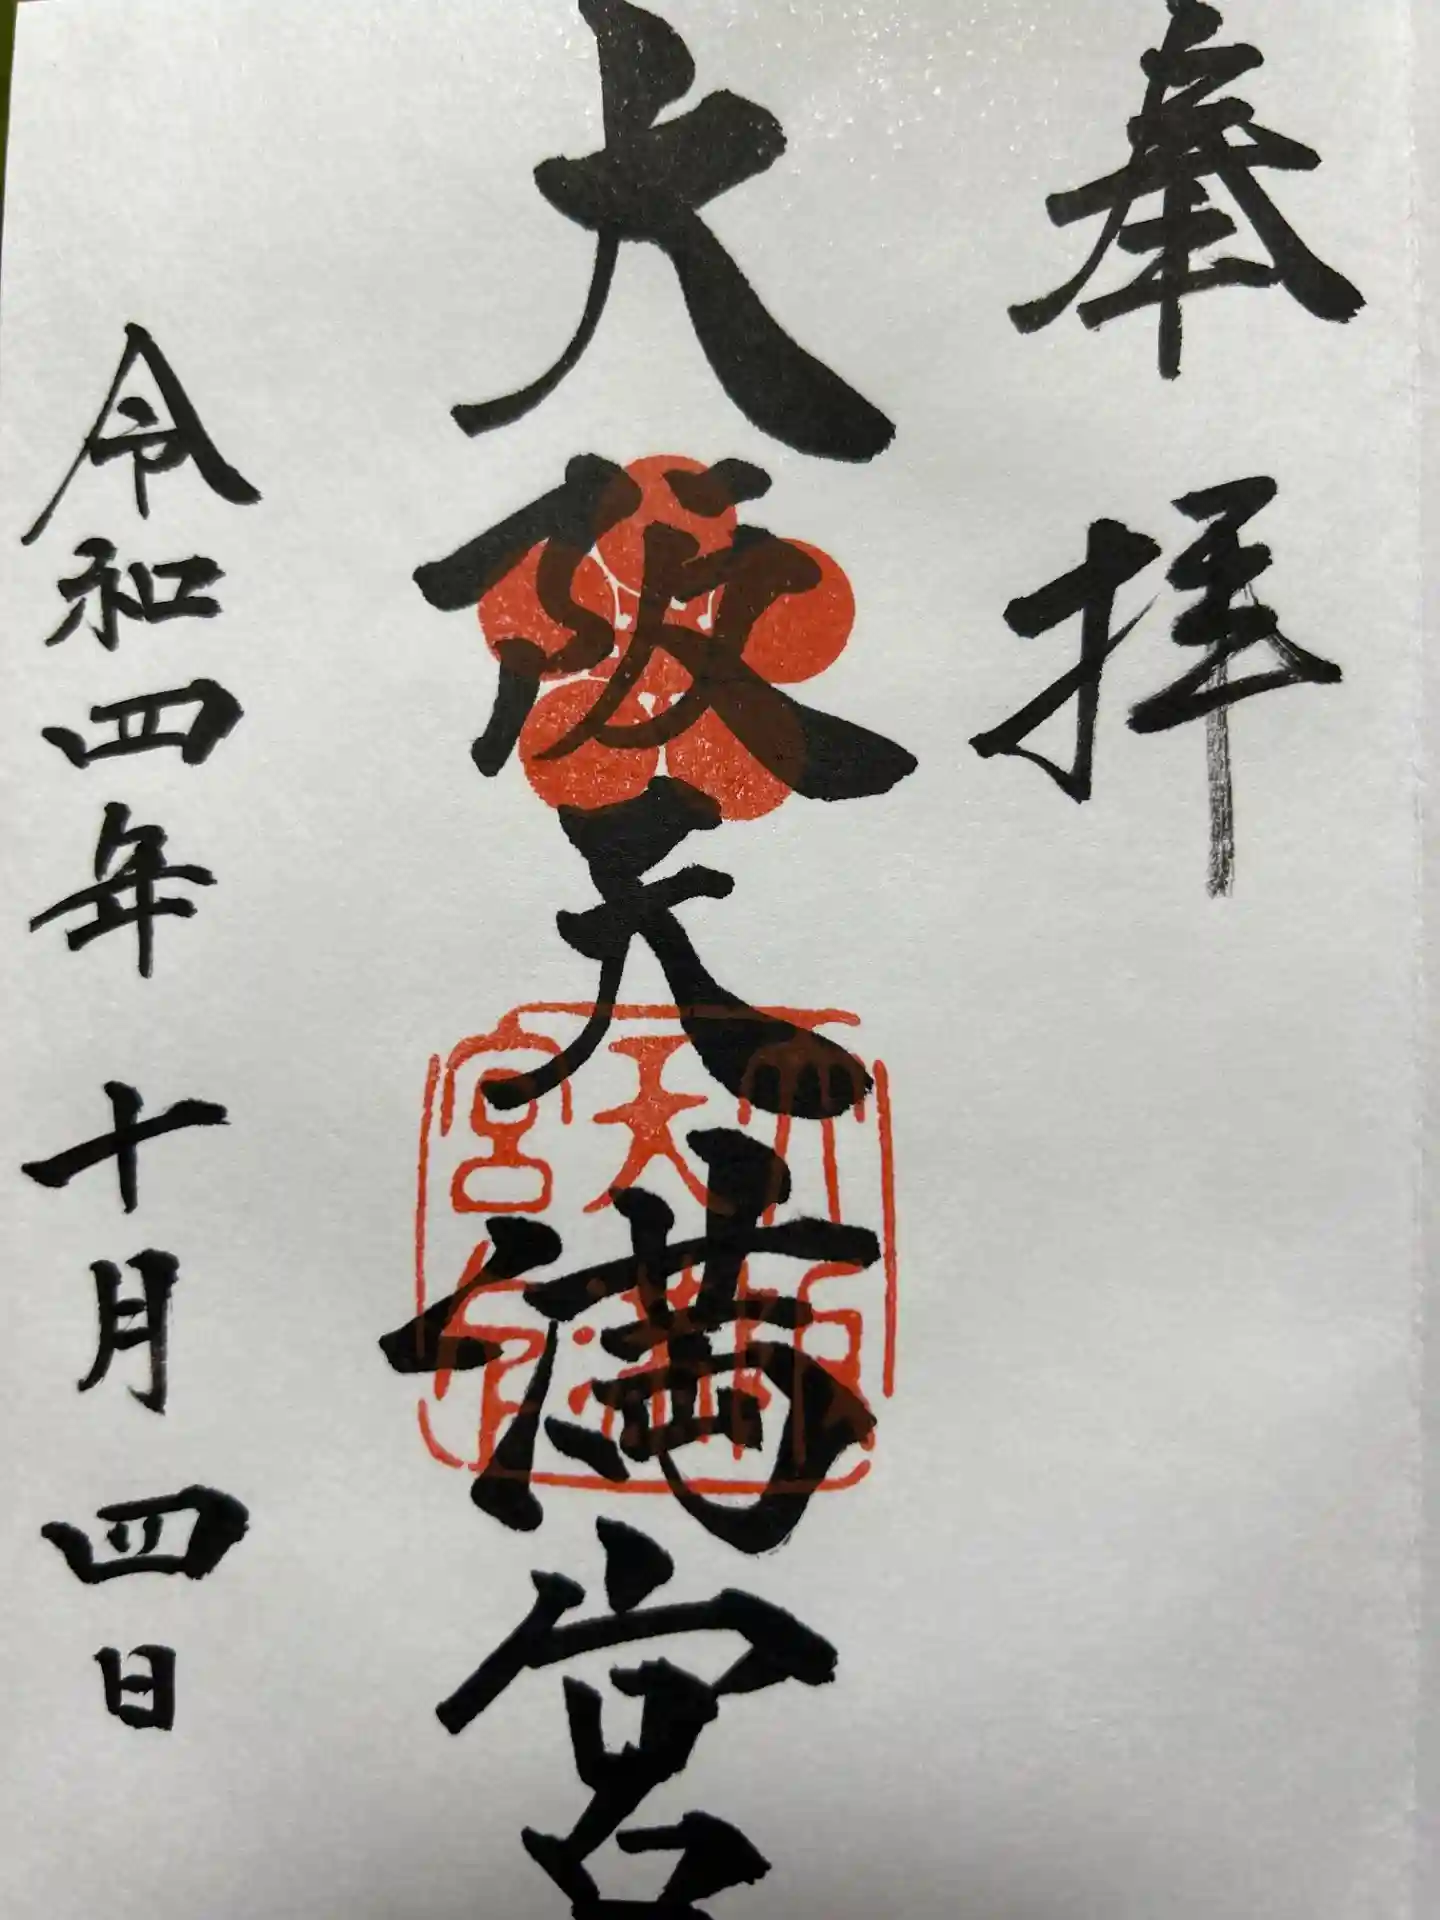 奉拝
大阪天満宮
大阪天満宮
令和四年十月四日